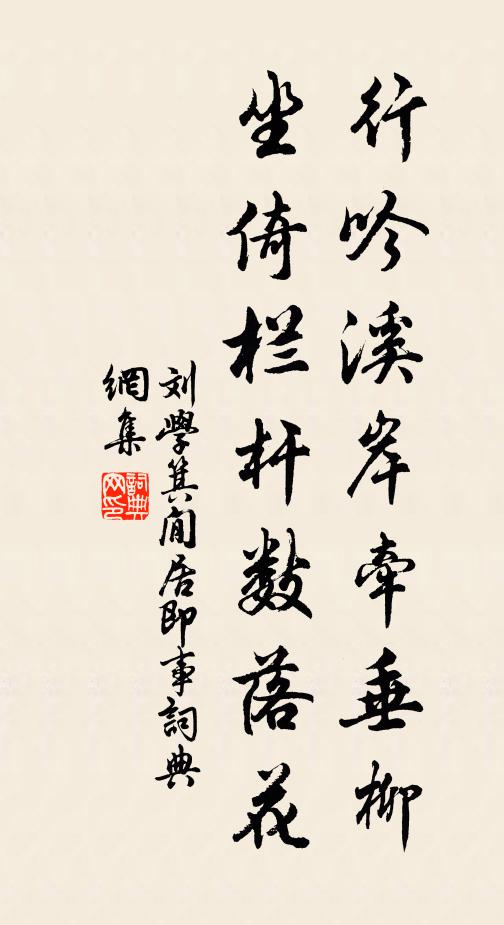 行吟溪岸牵垂柳
坐倚栏杆数落花
刘學箕閒居即事詞典
網集
詞典网印